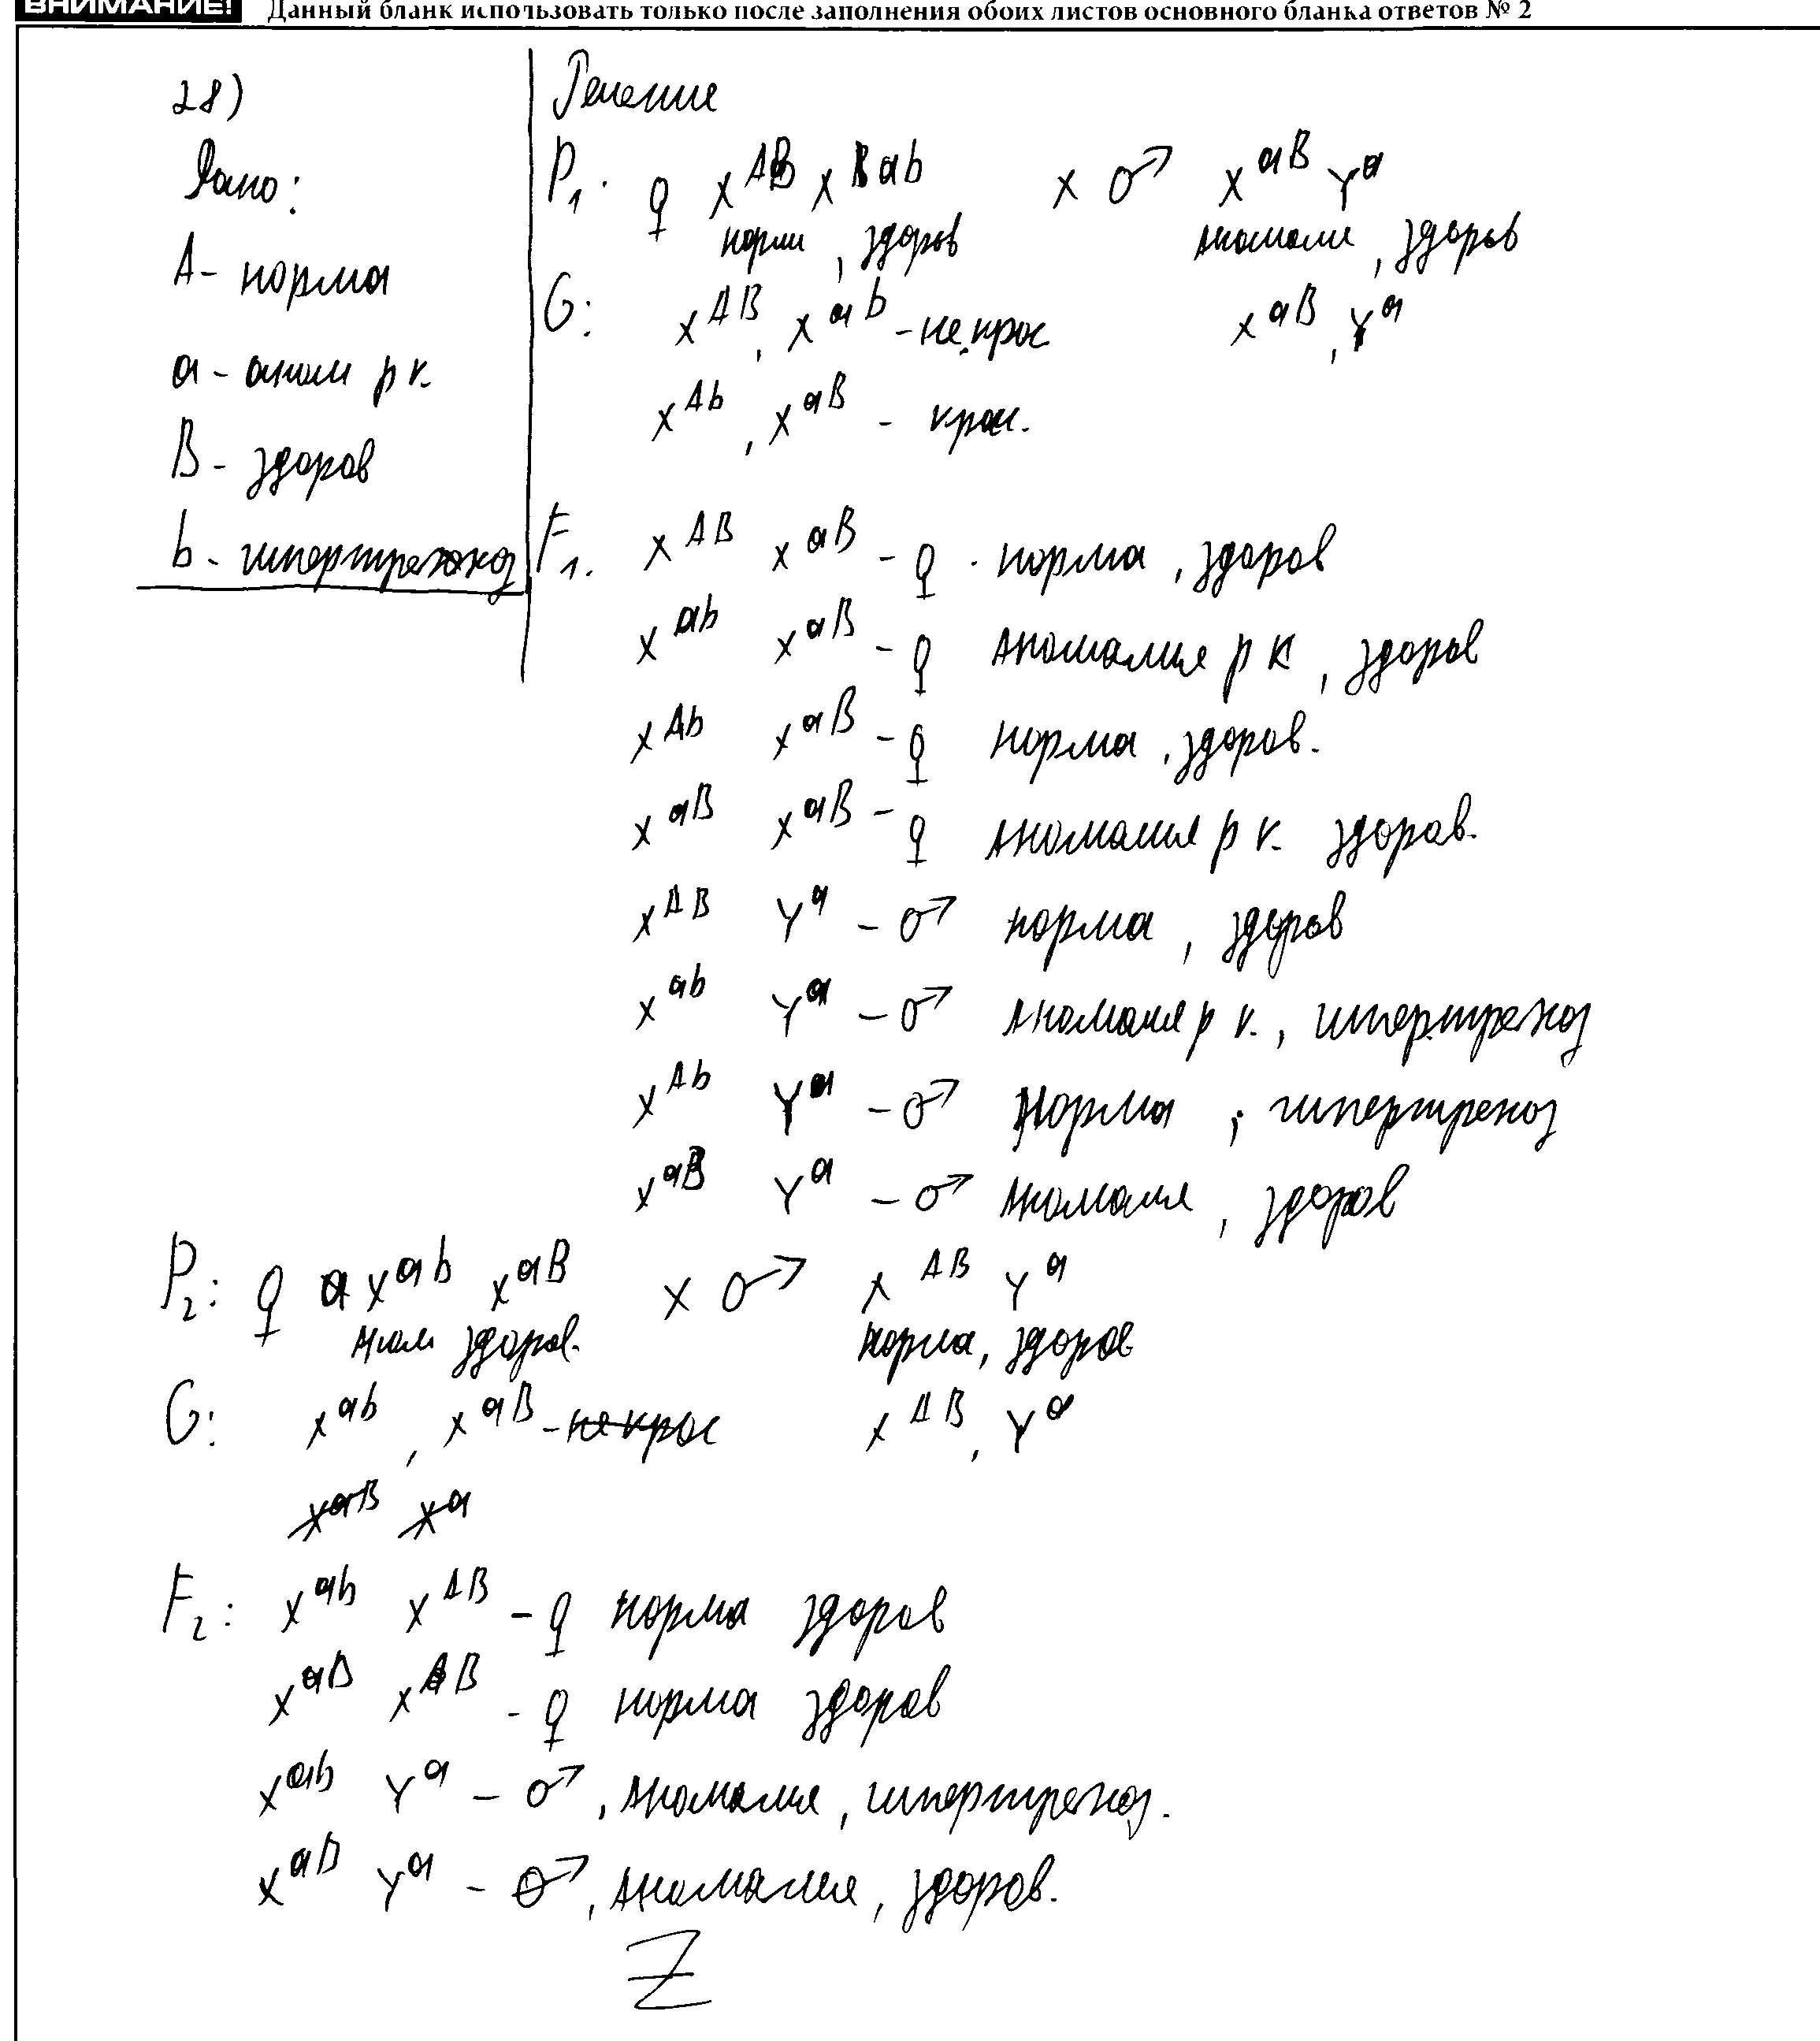 ВНИМАНИЕ! Данный бланк использовать только после заполнения обоих листов основного бланка ответов № 2
28)
Дано:
A - норма
a - аном р к.
B - здоров
b - гипертрихоз
Решение
P₁. ♀ X^AB X^ab x ♂ X^aB Y^a
норм, здоров аномали, здоров
G: X^AB, X^ab - не крос X^aB, Y^a
X^Ab, X^aB - крос.
F₁. X^AB X^aB - ♀ норма, здоров
X^ab X^aB - ♀ аномалия р к, здоров
X^Ab X^aB - ♀ норма, здоров.
X^aB X^aB - ♀ аномалия р к. здоров.
X^AB Y^a - ♂ норма, здоров
X^ab Y^a - ♂ аномалия р к., гипертрехоз
X^Ab Y^a - ♂ Норма, гипертрехоз
X^aB Y^a - ♂ аномалия, здоров
P₂: ♀ X^ab X^aB x ♂ X^AB Y^a
аном здоров. норма, здоров
G: X^ab, X^aB - не крос X^AB, Y^a
X^aB X^a
F₂: X^ab X^AB - ♀ норма здоров
X^aB X^AB - ♀ норма здоров
X^ab Y^a - ♂, аномалия, гипертрехоз.
X^aB Y^a - ♂, аномалия, здоров.
Z